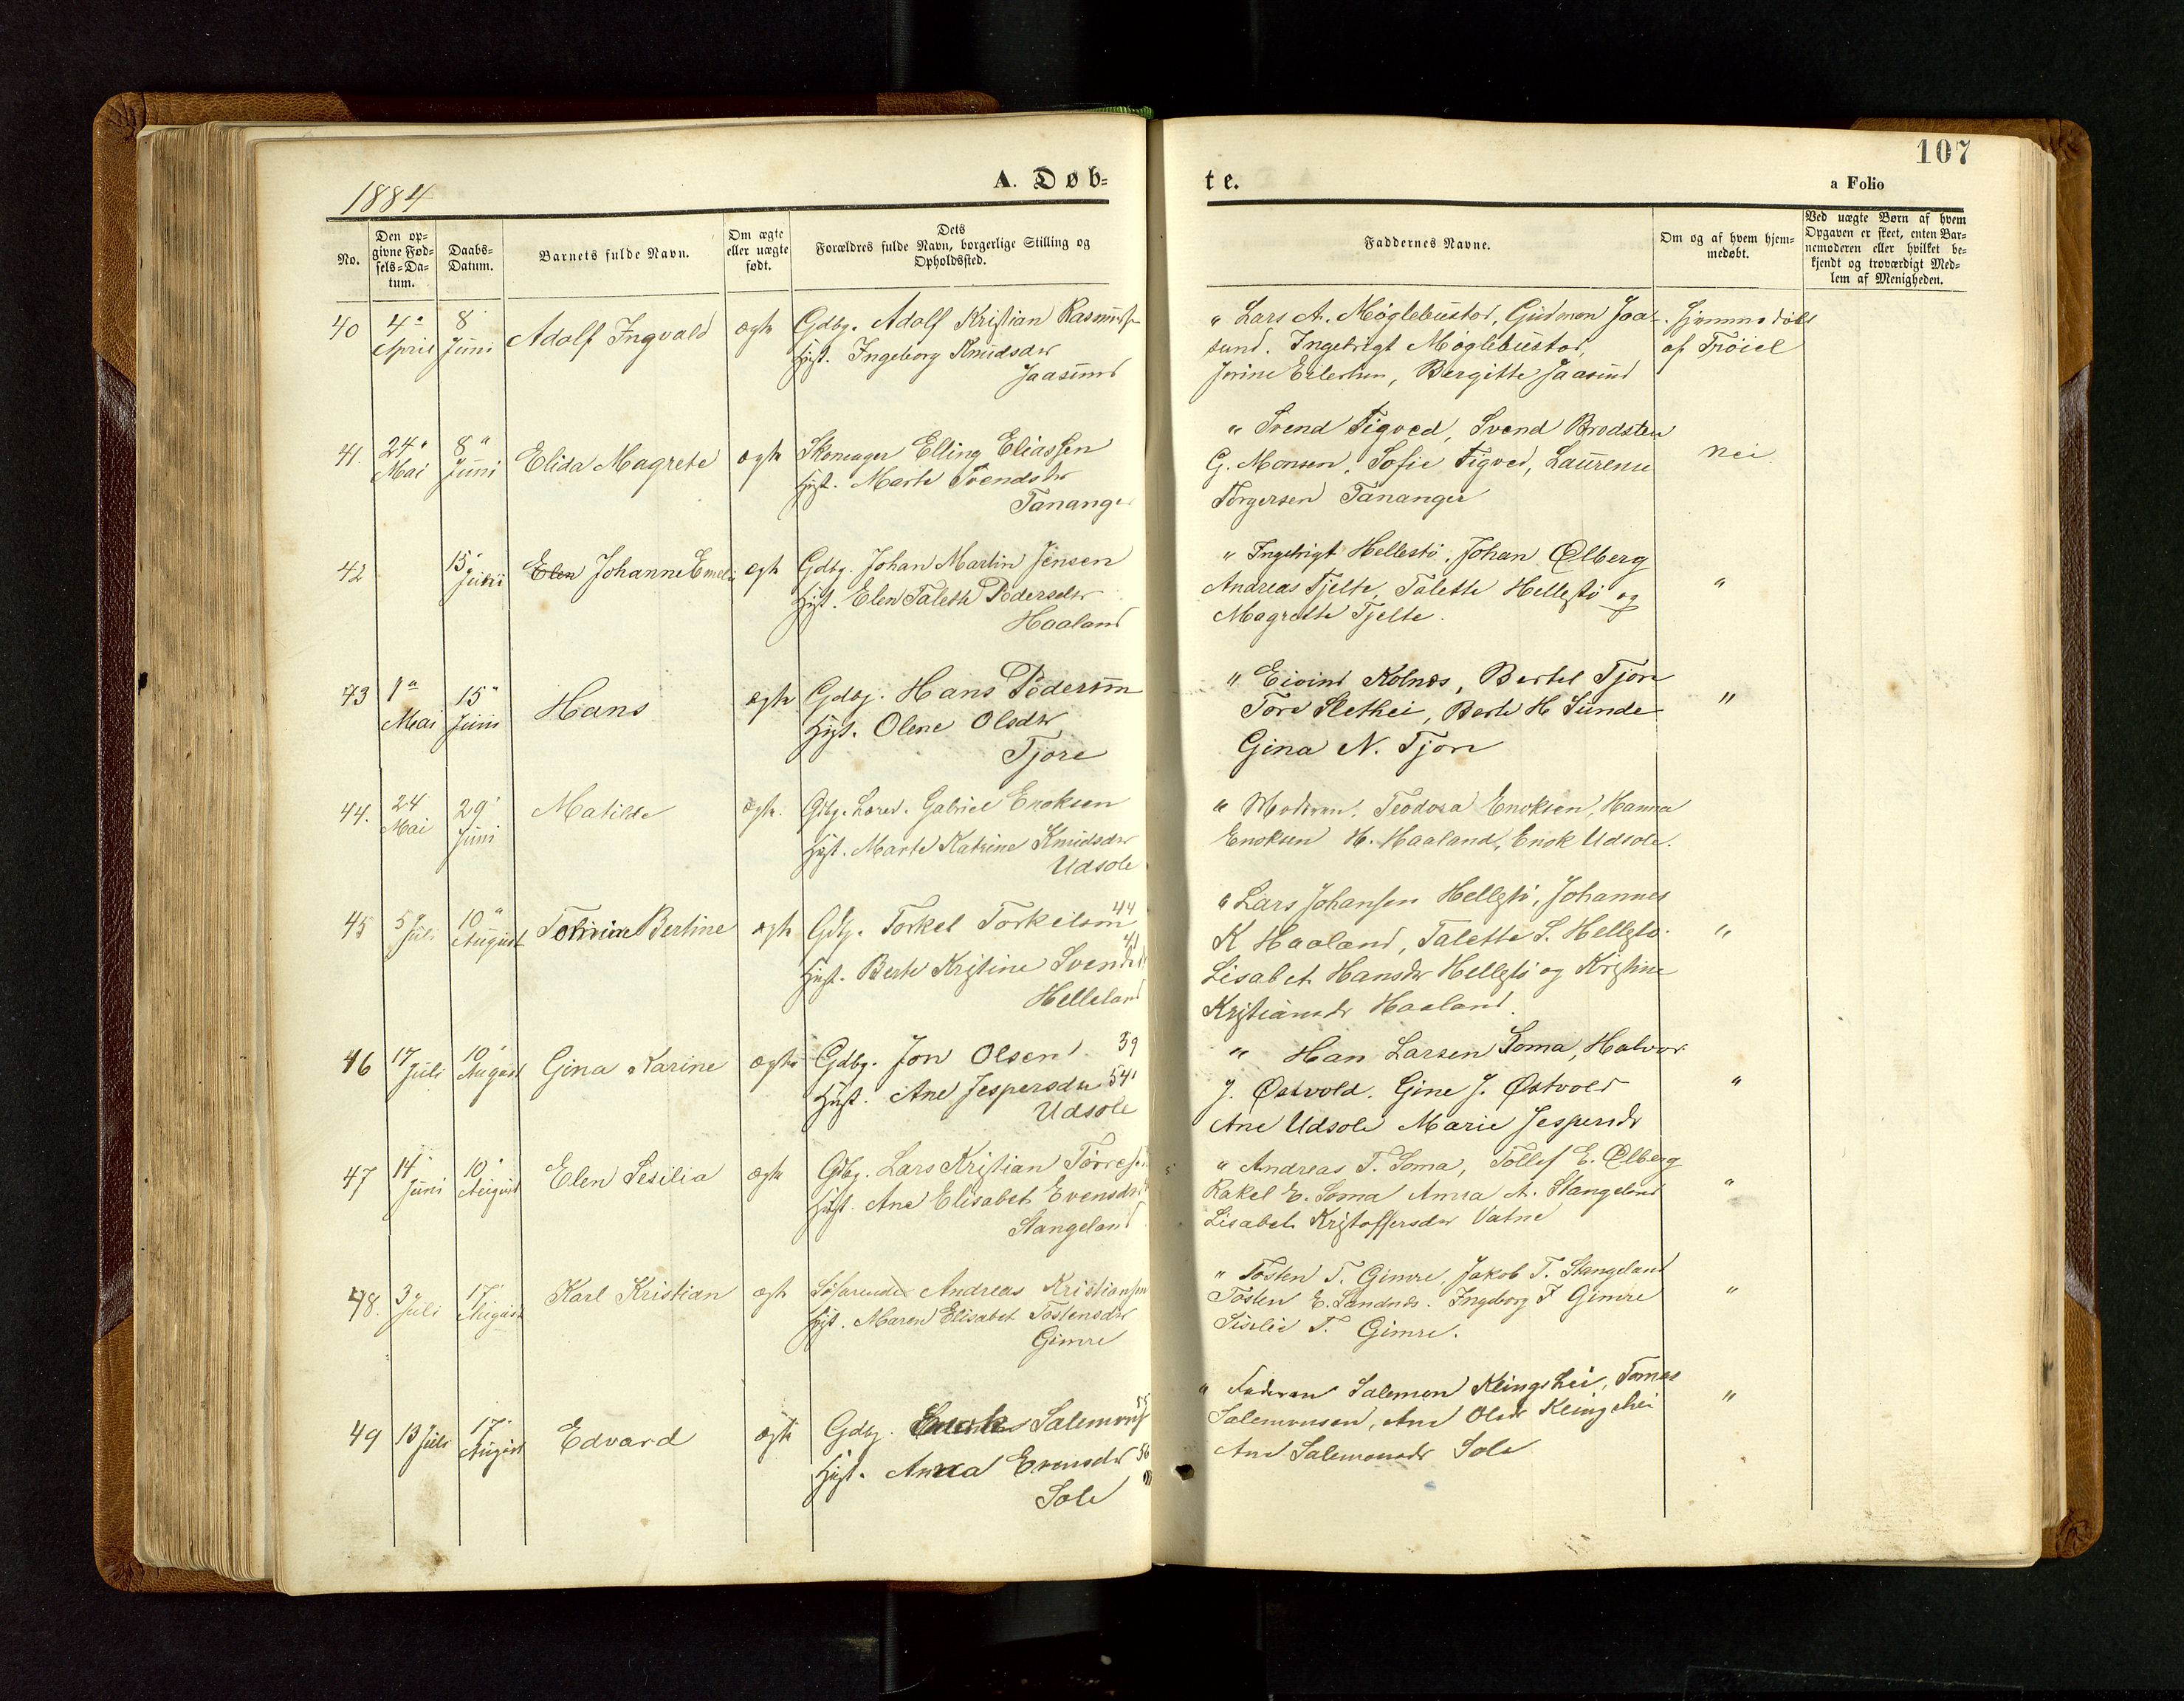 107
1884
A. Døb=
te.
a Folio
No.
Den op=
givne Fød=
sels=Da=
tum.
Daabs=
Datum.
Barnets fulde Navn.
Om ægte
eller uægte
født.
Dets
Forældres fulde Navn, borgerlige Stilling og
Opholdssted.
Faddernes Navne.
Om og af hvem hjem=
medøbt.
Ved uægte Børn af hvem
Opgaven er skeet, enten Bar=
nemoderen eller hvilket be=
kjendt og troværdigt Med=
lem af Menigheden.
40
4"
April
8
Juni
Adolf Ingvald
ægte
Gdbg. Adolf Kristian
Hust. Ingeborg Knudsdtr
Jaasund
" Lars A. Møglebustod, Gudmon Jaa-
sund. Ingebrigt Møglebustod,
Jorine, Bergitte Jaasund
Hjemmedøbt
af
41.
24"
Mai
8"
Juni
Elida Magrete
ægte
Skomager Elling Eliassen
Hust. Marte Svendsdtr
Tananger
" Svend Tigved, Svend Brodsten
G. Monsen, Sofie Tigved, Laurense
Torgersen Tananger
nei
42
15"
Juni
Elen Johanne Emelie
ægte
Gdbg. Johan Martin Jensen
Hust. Elen Talette Pedersdtr
Haaland
" Ingebrigt Hellestø, Johan Ølberg
Andreas Tjelte, Talette Hellestø og
Magrethe Tjelte.
"
43
1"
Mai
15"
Juni
Hans
ægte
Gdbg. Hans Pedersen
Hust. Olene Olsdtr
Tjore
" Eivind Kolnes, Bertel Tjore
Tore Slethei, Berte H Sunde
Gina N. Tjore
"
44.
24
Mai
29"
Juni
Matilde
ægte.
Gdbg. Gabriel Enoksen
Hust. Marte Katrine Knudsdtr
Udsole
" Moderen, Teodora Enoksen, Hanna
Enoksen H. Haaland, Enok Udsole.
45
5
Juli
10"
August
Bertine
ægte
Gdbg. Torkel Torkelsen 44
Hust. Berte Kristine 41
Helleland
" Lars Johansen Hellestø, Johannes
K Haaland, Talette S. Hellestø.
Lisabet Hansdtr Hellestø og Kristine
Kristiansdtr Haaland.
"
46
17
Juli
10"
August
Gina Karine
ægte
Gdbg. Jon Olsen 39
Hust. Ane Jespersdtr 54
Udsole
" Han Larsen Soma, Halvor
J. Østvold. Gine J. Østvold
Ane Udsole Marie Jespersdtr
"
47
14"
Juni
10"
August
Elen Sesilia
ægte
Gdbg. Lars Kristian Torresen
Hust. Ane Elisabet Evensdtr
Stangeland
" Andreas T. Soma, Tollef E. Ølberg
Rakel E. Soma Anna A. Stangeland
Lisabet Kristoffersdtr Vatne
"
48.
3"
Juli
17"
August
Karl Kristian
ægte
Søfarende Andreas Kristiansen
Hust. Maren Elisabet Tostensdtr
Gimre
" Tosten T. Gimre, Jakob T. Stangeland
Tosten E. Sandnes. Ingeborg T Gimre
Siselie T. Gimre.
"
49
13 Juli
17"
August
Edvard
ægte
Gdbg. Salemons
Hust. Anna Evensdtr 56
Sole
" Faderen Salemon Klingshei, Tomas
Salemonsen, Ane Olsdtr Klingshei
Ane Salemonsdtr Sole
"